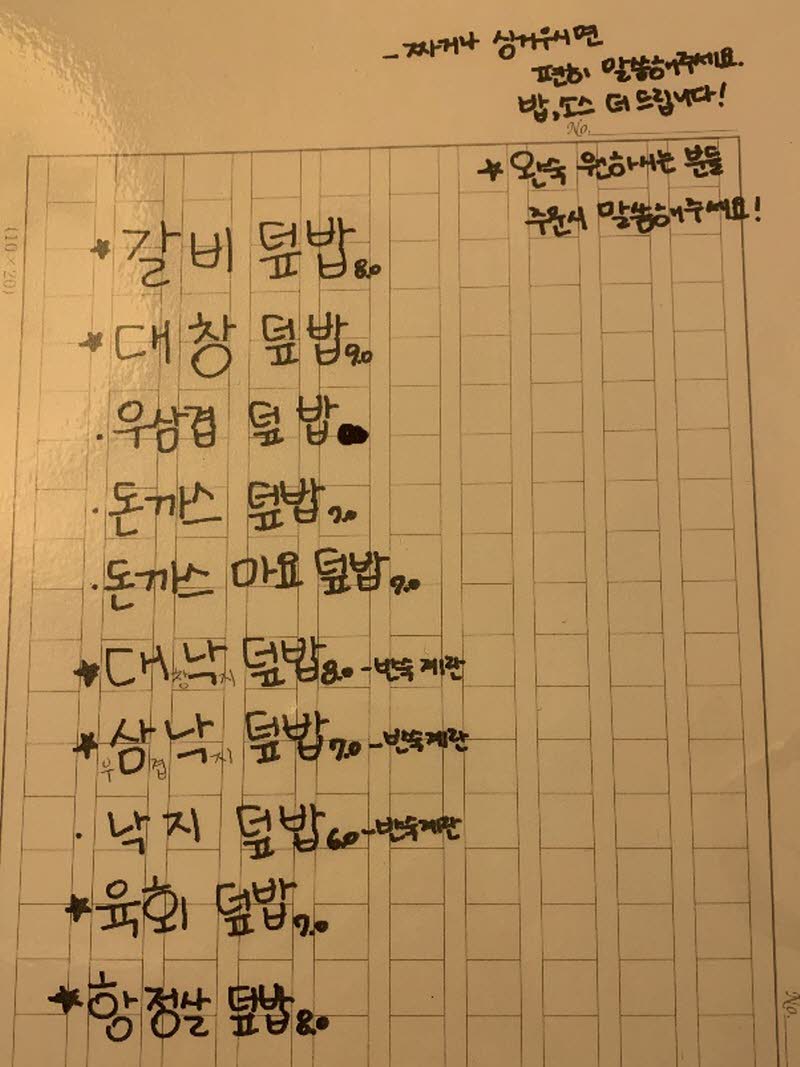 - 짜거나 싱거우시면
편히 말씀해주세요.
밥,소스 더 드립니다!
No.
★ 완숙 원하시는 분들
주문시 말씀해주세요!
(10×20)
★ 갈비 덮밥 8.0
★ 대창 덮밥 9.0
· 우삼겹 덮밥
· 돈까스 덮밥 7.0
· 돈까스 마요 덮밥 7.0
★ 대창낙지 덮밥 8.0 - 반숙계란
★ 우삼겹낙지 덮밥 7.0 - 반숙계란
· 낙지 덮밥 6.0 - 반숙계란
★ 육회 덮밥 7.0
★ 항정살 덮밥 8.0
No.